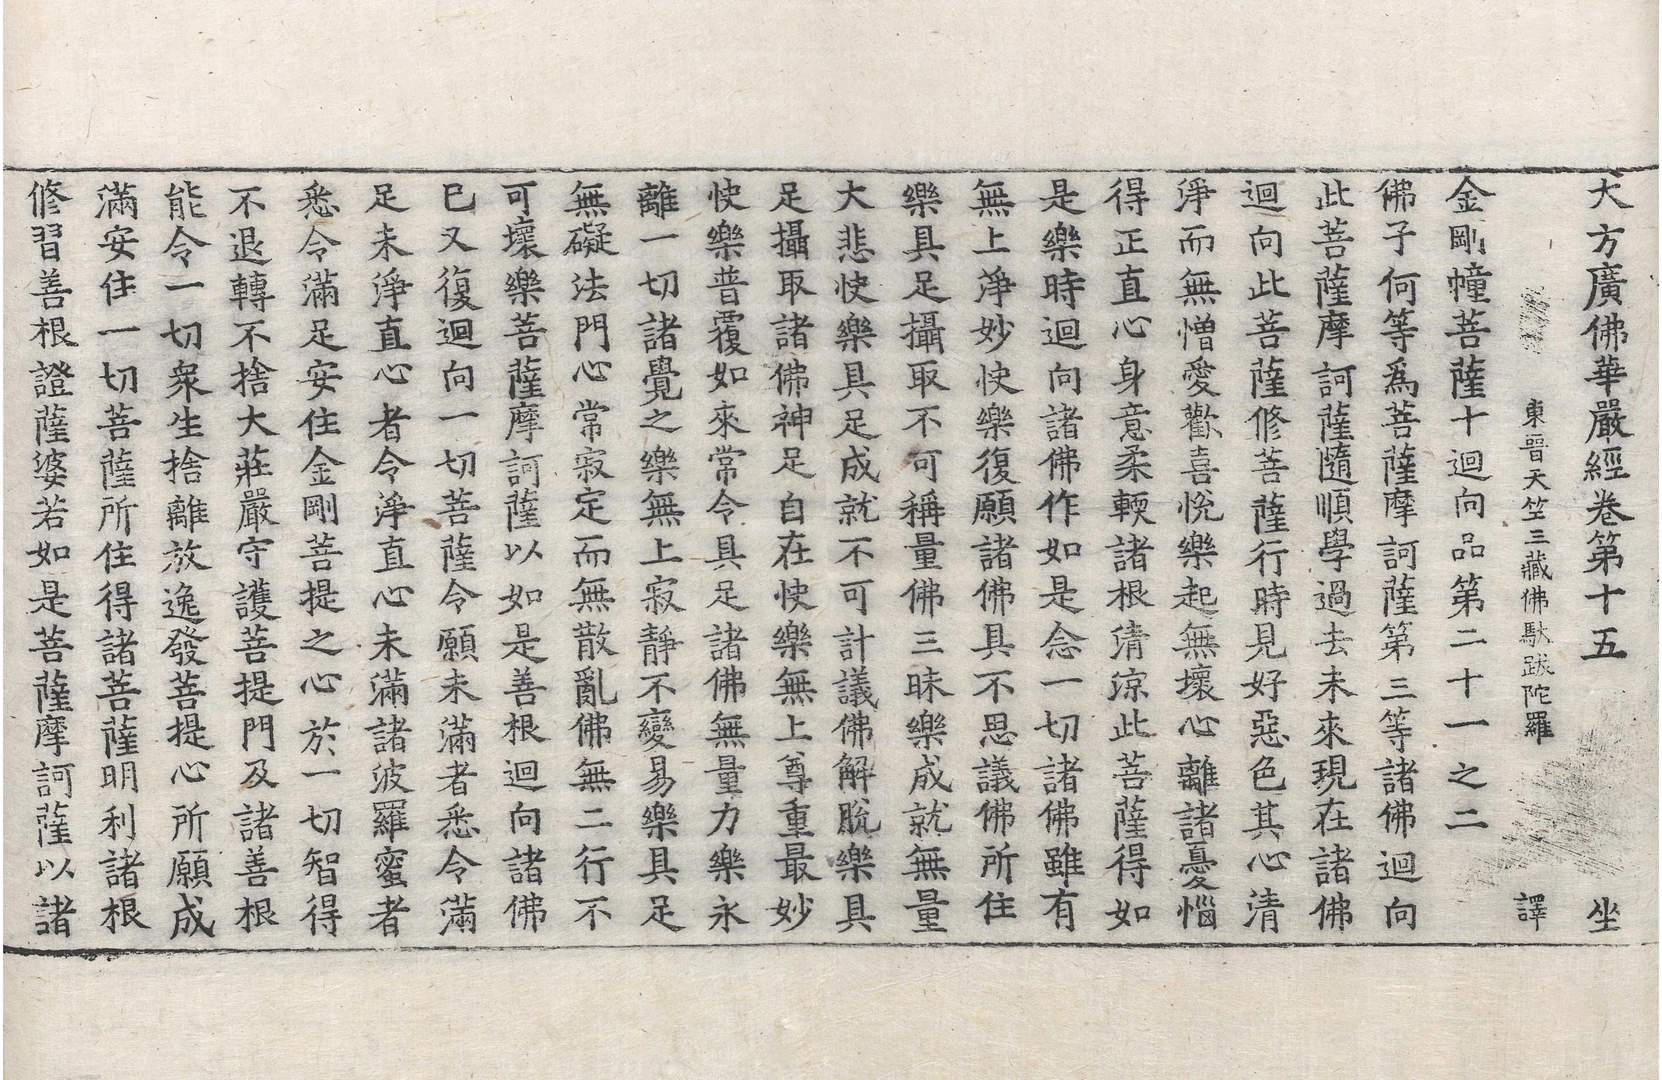 大方廣佛華嚴經卷第十五 坐
東晉天竺三藏佛馱跋陀羅 譯
金剛幢菩薩十迴向品第二十一之二
佛子何等爲菩薩摩訶薩第三等諸佛迴向
此菩薩摩訶薩隨順學過去未來現在諸佛
迴向此菩薩修菩薩行時見好惡色其心清
淨而無憎愛歡喜悅樂起無壞心離諸憂惱
得正直心身意柔輭諸根清涼此菩薩得如
是樂時迴向諸佛作如是念一切諸佛雖有
無上淨妙快樂復願諸佛具不思議佛所住
樂具足攝取不可稱量佛三昧樂成就無量
大悲快樂具足成就不可計議佛解脫樂具
足攝取諸佛神足自在快樂無上尊重最妙
快樂普覆如來常令具足諸佛無量力樂永
離一切諸覺之樂無上寂靜不變易樂具足
無礙法門心常寂定而無散亂佛無二行不
可壞樂菩薩摩訶薩以如是善根迴向諸佛
已又復迴向一切菩薩令願未滿者悉令滿
足未淨直心者令淨直心未滿諸波羅蜜者
悉令滿足安住金剛菩提之心於一切智得
不退轉不捨大莊嚴守護菩提門及諸善根
能令一切衆生捨離放逸發菩提心所願成
滿安住一切菩薩所住得諸菩薩明利諸根
修習善根證薩婆若如是菩薩摩訶薩以諸